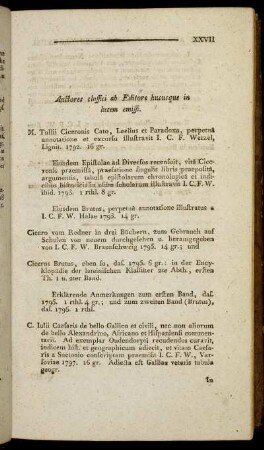 XXVII
Auctores classici ab Editore hucusque in
lucem emissi.
M. Tullii Ciceronis Cato, Laelius et Paradoxa, perpetua
annotatione et excursu illustravit I. C. F. Wetzel,
Lignit. 1792. 16 gr.
Eiusdem Epistolae ad Diversos recensuit, vita Cice-
ronis praemissa, praefatione singulis libris praeposita,
argumentis, tabula epistolarum chronologica et indi-
cibus historicis in usum scholarum illustravit I. C. F. W.
ibid. 1793. 1 rthl. 8 gr.
Eiusdem Brutus, perpetua annotatione illustratus a
I. C. F. W. Halae 1795. 14 gr.
Cicero vom Redner in drei Büchern, zum Gebrauch auf
Schulen von neuem durchgesehen u. herausgegeben
von I. C. F. W. Braunschweig 1795. 14 gr.; und
Ciceros Brutus, eben so, das. 1795. 6 gr.; in der Ency-
klopädie der lateinischen Klassiker 2te Abth., ersten
Th. 1 u. 2ter Band.
Erklärende Anmerkungen zum ersten Band, das.
1795. 1 rthl. 4 gr.; und zum zweiten Band (Brutus),
das. 1796. 1 rthl.
C. Iulii Caesaris de bello Gallico et civili, nec non aliorum
de bello Alexandrino, Africano et Hispaniensi commen-
tarii. Ad exemplar Oudendorpii recudendos curavit,
indicem hist. et geographicum adiecit, et vitam Caesa-
ris a Suetonio conscriptam praemisit I. C. F. W., Var-
soviae 1797. 16 gr. Adiecta est Galliae veteris tabula
geogr.
In